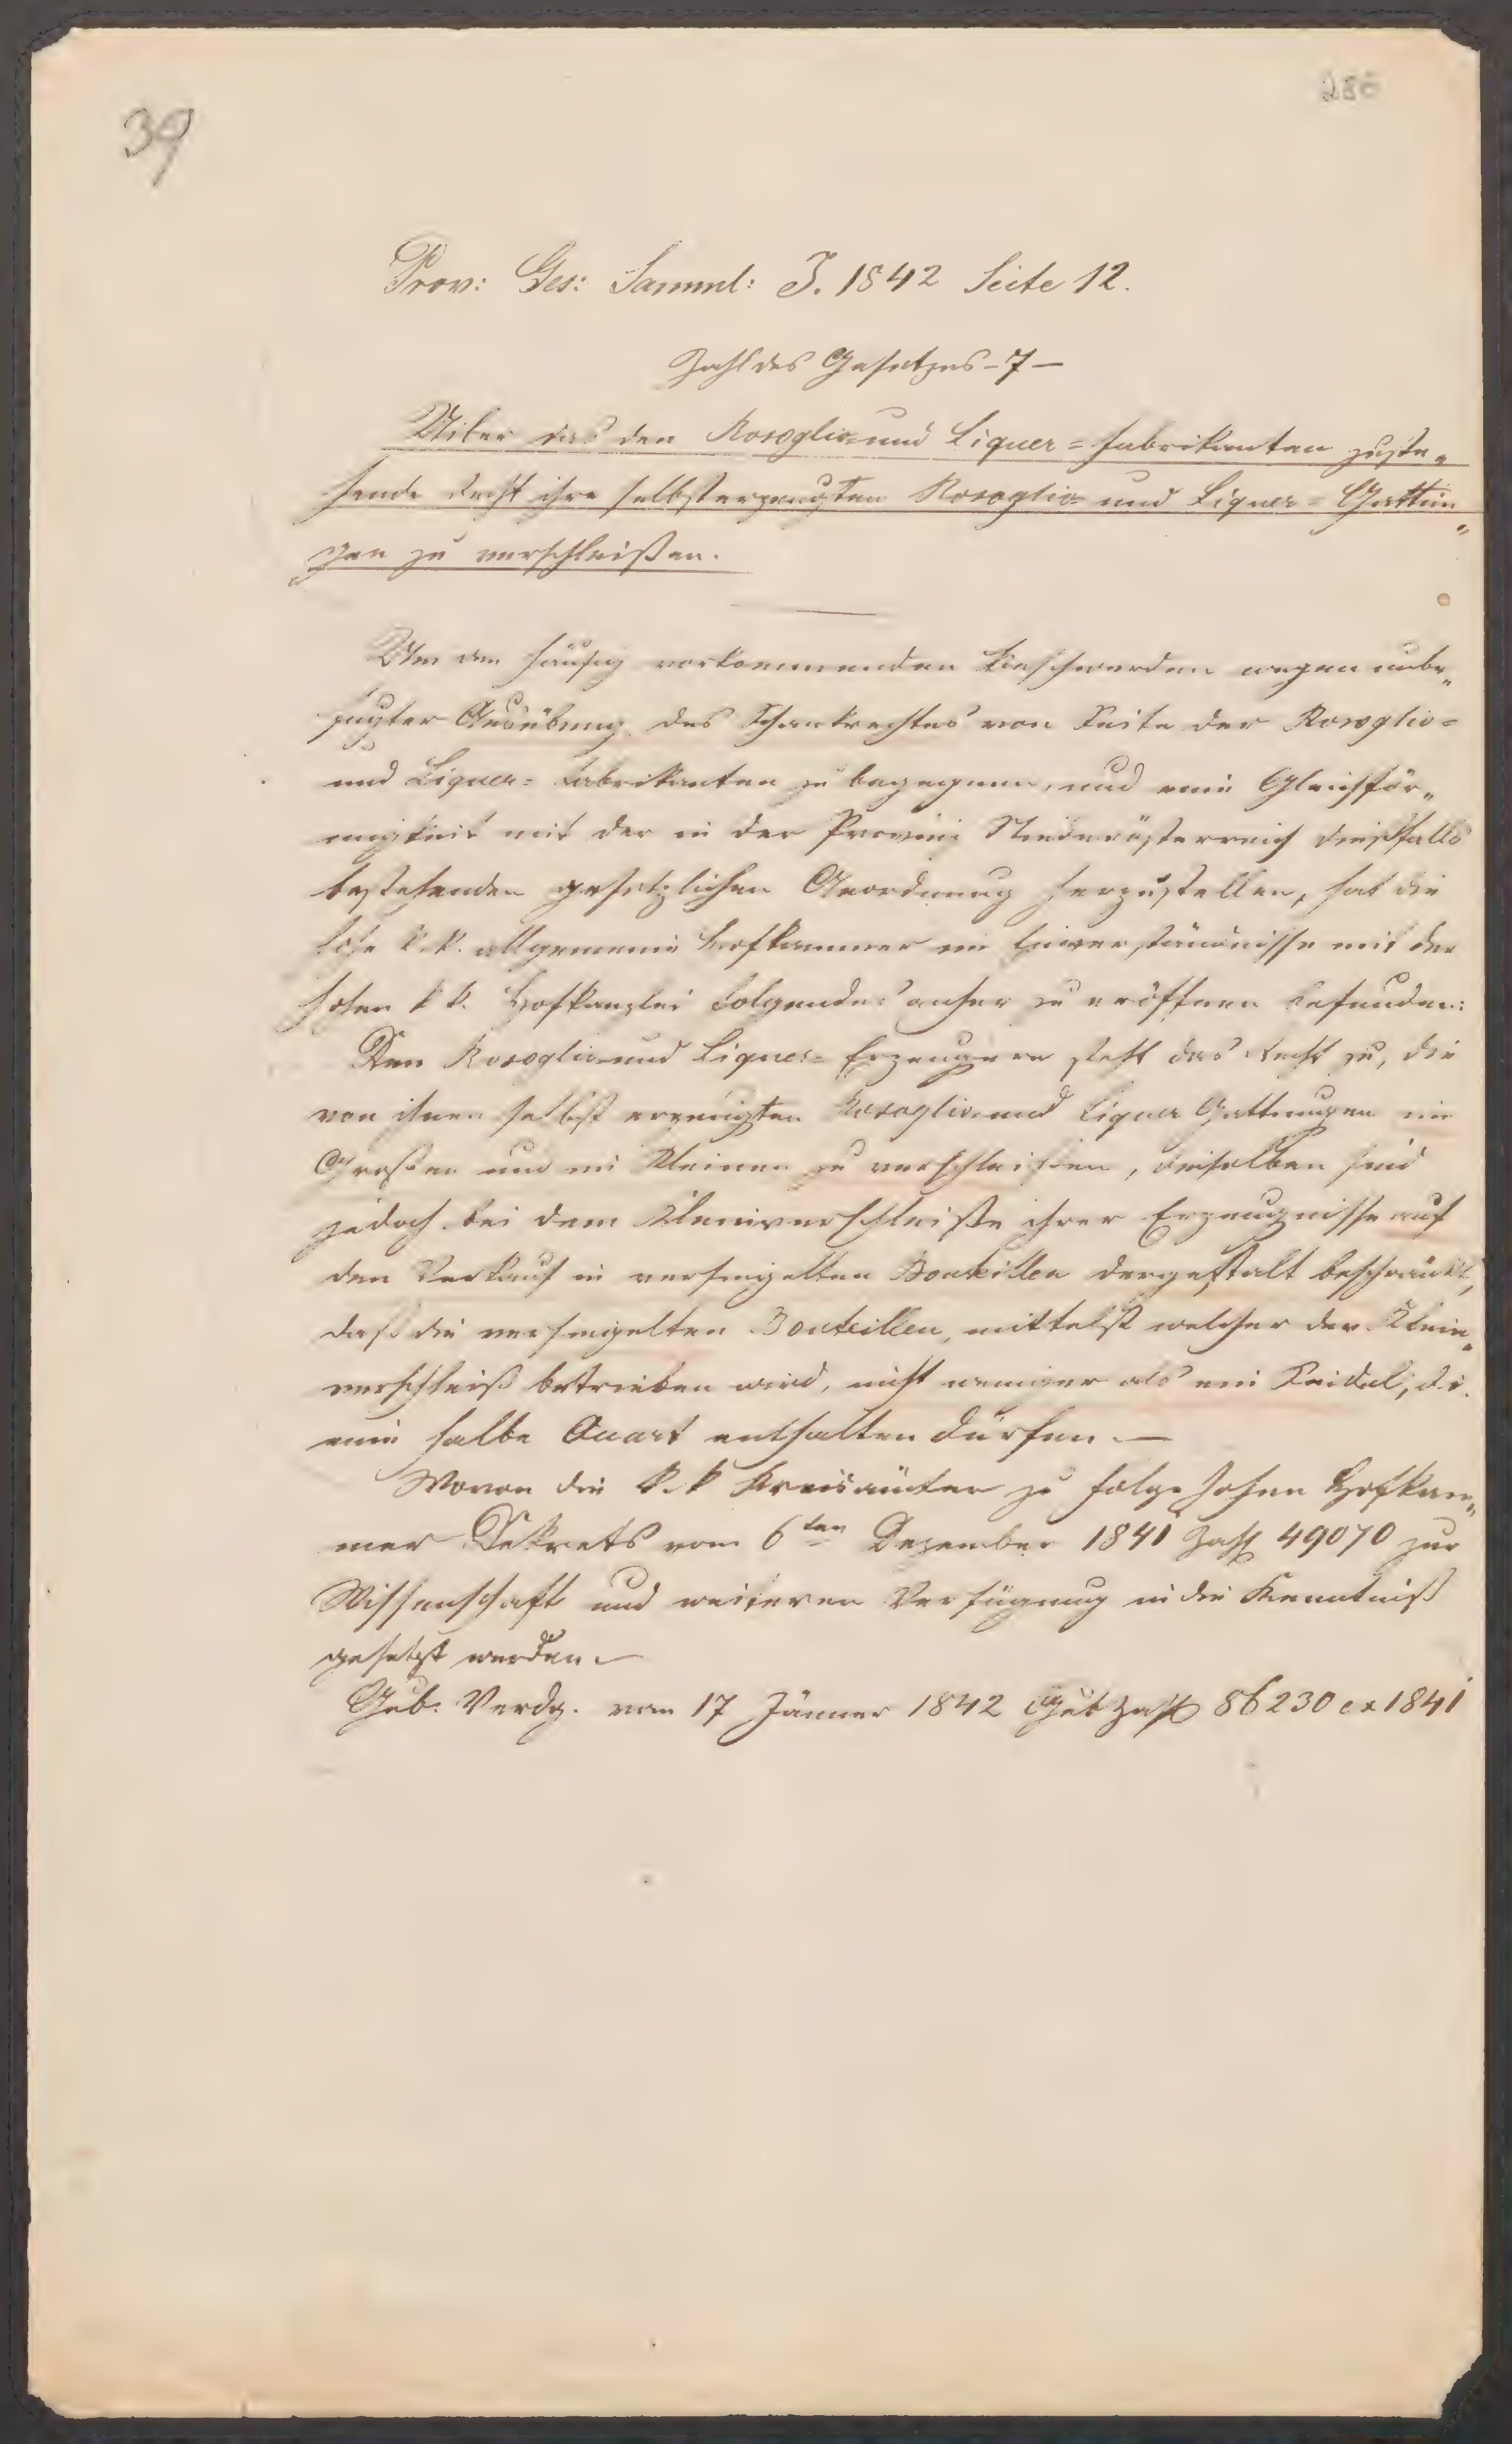 39
286
Prov: Ges: Samml: J. 1842 Seite 12.
Zahl des Gesetzes - 7 -
Uiber das den Rosoglio= und Liquer = Fabrikanten zuste„
hende Recht ihre selbsterzeugten Rosoglio= und Liquer = Gattun„
gen zu verschleißen.
Um den häufig vorkommenden Beschwerden wegen unbe„
fugter Ausübung des Schankrechtes von Seite der Rosoglio=
und Liquer= Fabrikanten zu begegnen, und eine Gleichför„
migkeit mit der in der Provinz Niederösterreich dießfalls
bestehenden gesetzlichen Anordnung herzustellen, hat die
hohe k. k. allgemeine Hofkammer im Einverständnisse mit der
hohen k k. Hofkanzlei Folgendes anher zu eröffnen befunden:
Den Rosoglio und Liquer= Erzeugern steht das Recht zu, die
von ihnen selbst erzeugten Rosoglio und Liquer Gattungen im
Großen und im Kleinen zu verschleißen, dieselben sind
jedoch bei dem Kleinverschleiße ihrer Erzeugnisse auf
den Verkauf in versiegelten Bouteillen dergestalt beschränkt,
daß die versiegelten Bouteillen, mittelst welcher der Klein„
verschleiß betrieben wird, nicht weniger als ein Seidel, d. i.
eine halbe Quart enthalten dürfen. —
Wovon die k. k Kreisämter zu Folge hohen Hofkam„
mer Dekrets vom 6ten Dezember 1841 Zahl 49070 zur
Wissenschaft und weiteren Verfügung in die Kenntniß
gesetzt werden. —
Gub: Verdg. vom 17 Jänner 1842 Gub Zahl 86230 ex 1841